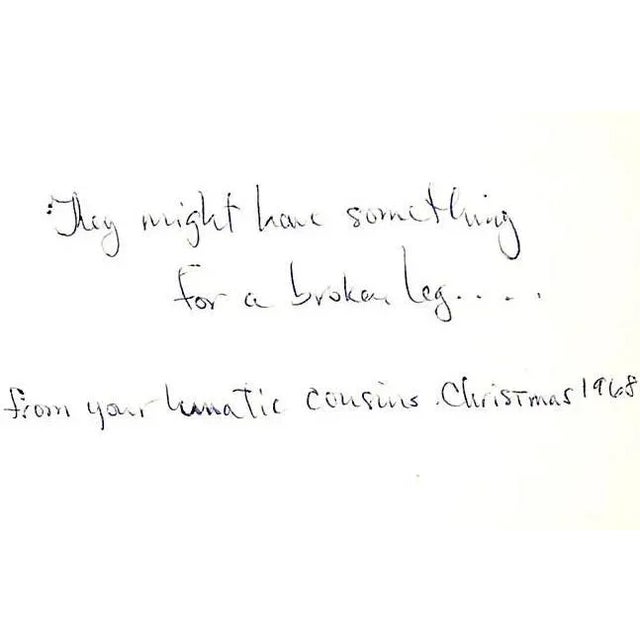 They might have something
for a broken leg.....
from your lunatic cousins. Christmas 1968